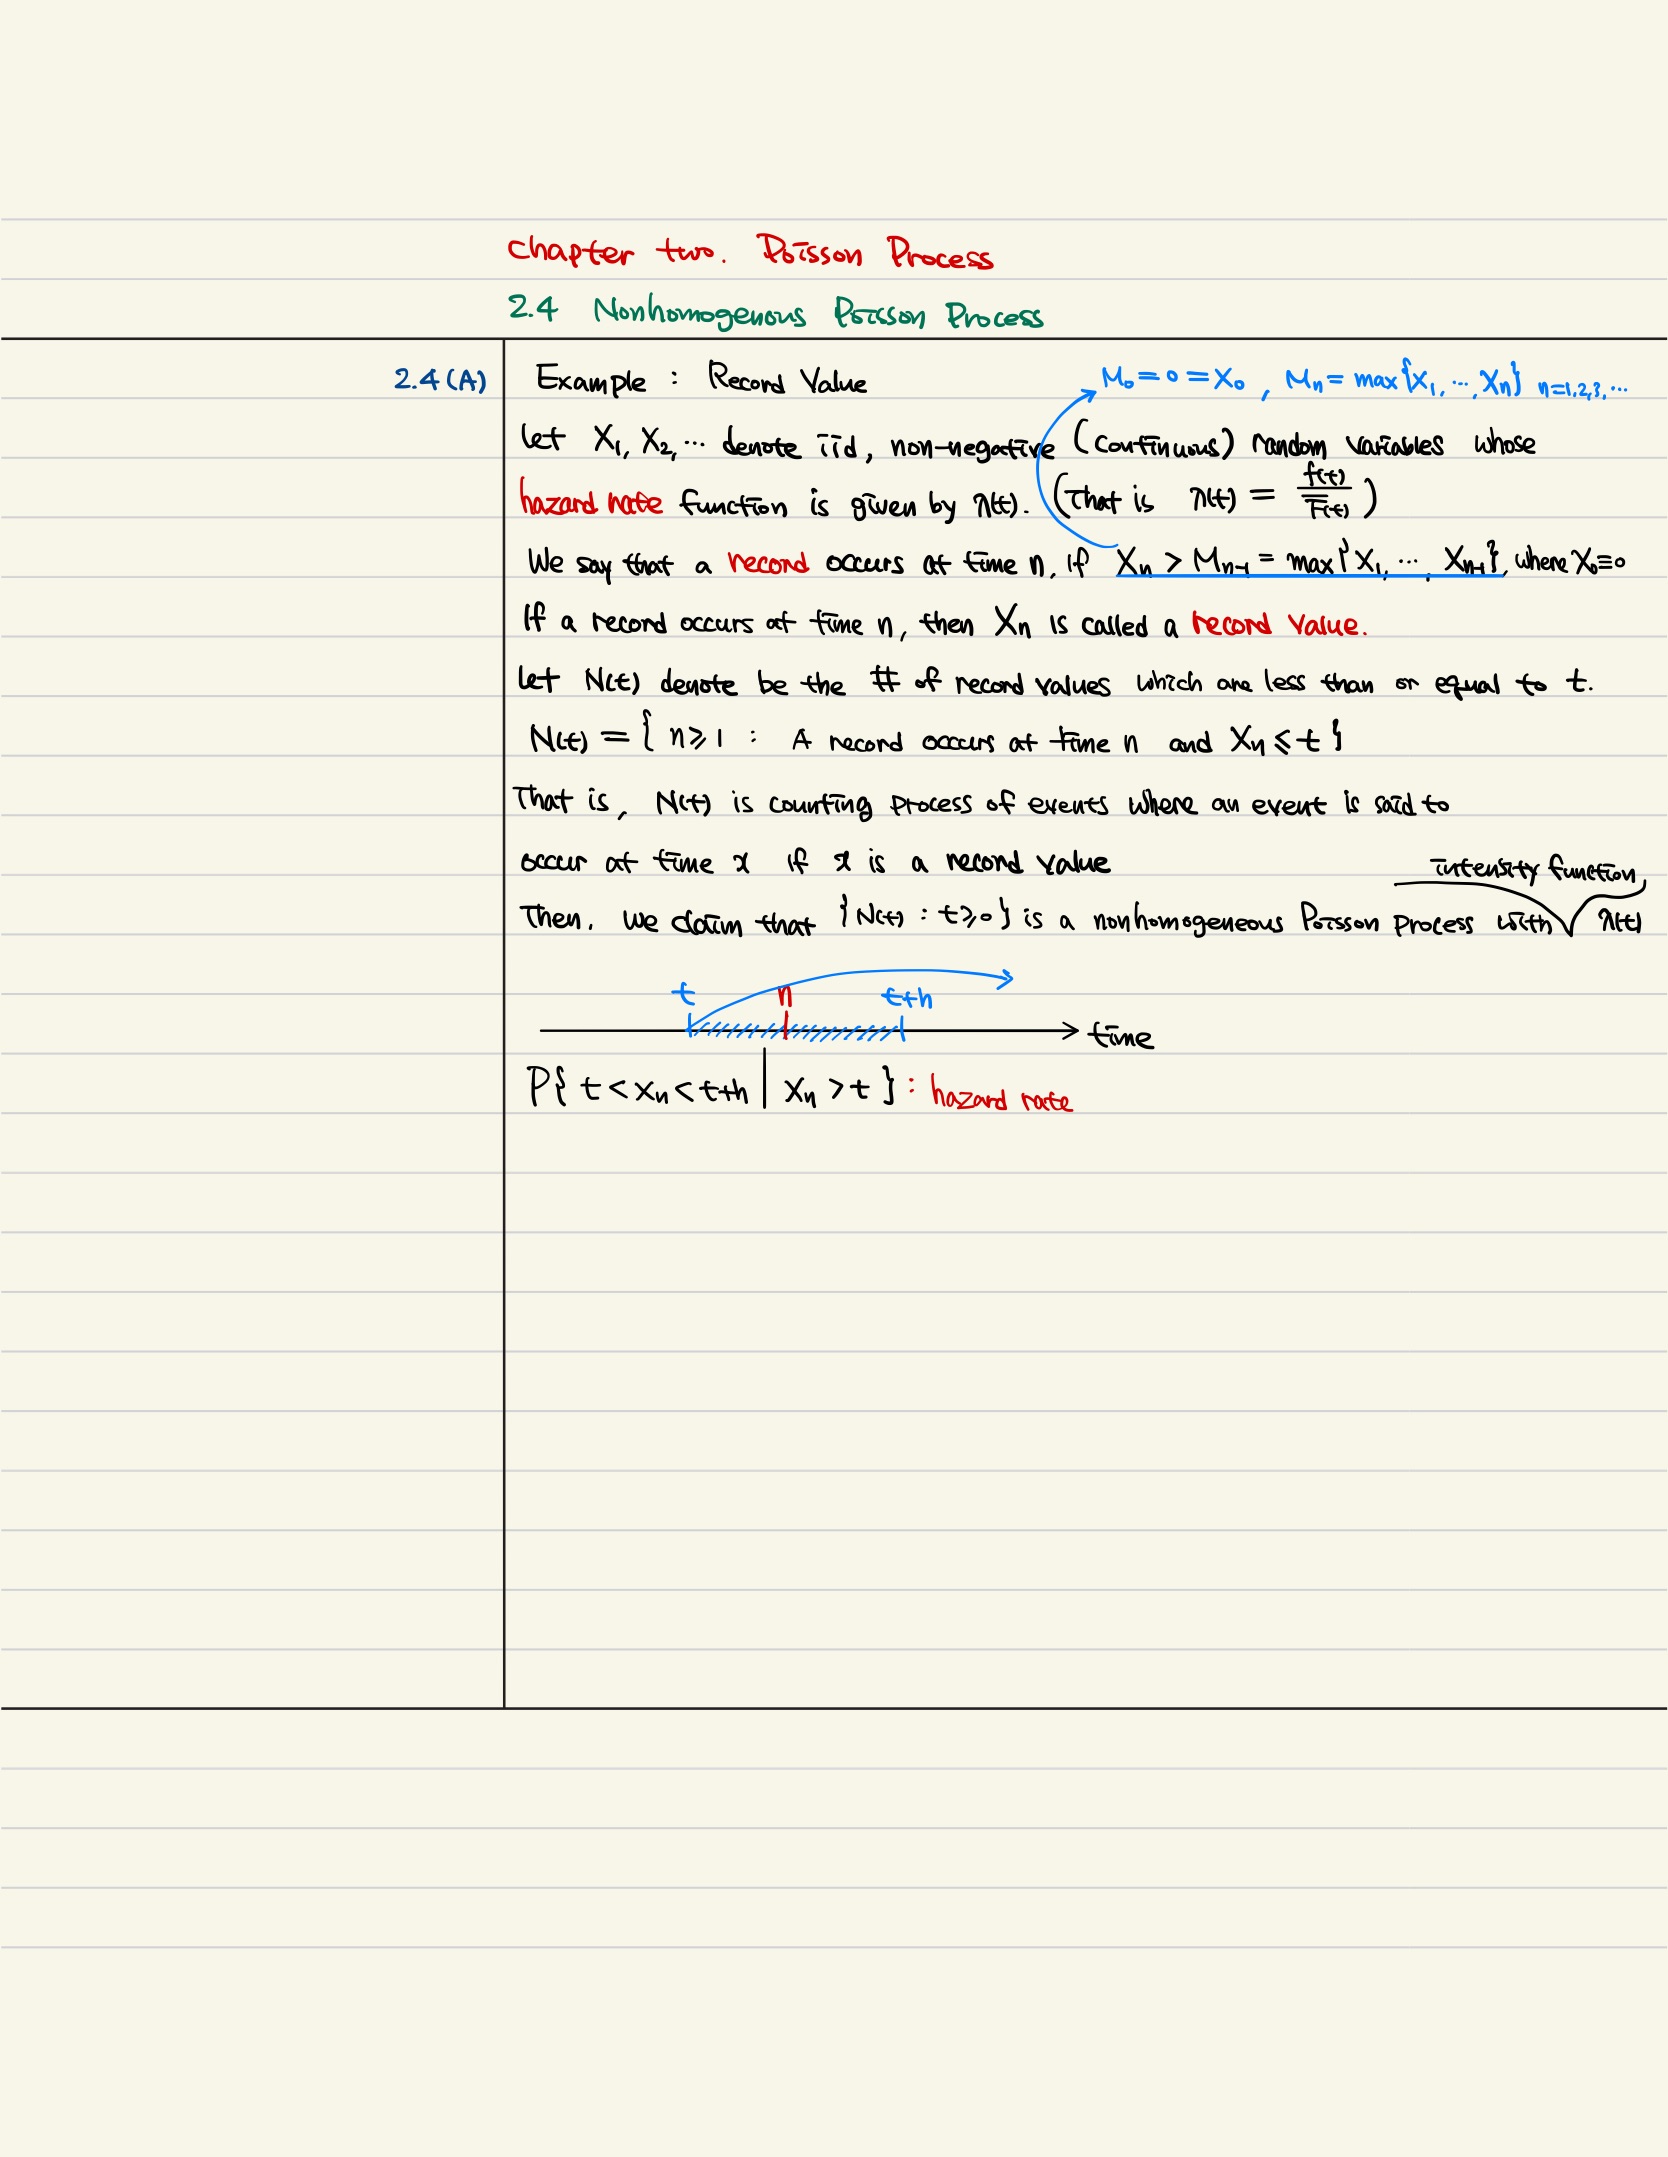 Chapter two. Poisson Process
2.4 Nonhomogenous Poisson Process
2.4(A)
Example : Record Value
M₀ = 0 = X₀ , Mₙ = max{X₁, ⋯, Xₙ} n=1,2,3,⋯
Let X₁, X₂, ⋯ denote iid, non-negative (continuous) random variables whose
hazard rate function is given by λ(t). (That is λ(t) = f(t)/F̅(t))
We say that a record occurs at time n, if Xₙ > Mₙ₋₁ = max{X₁, ⋯, Xₙ₋₁}, where X₀≡0
If a record occurs at time n, then Xₙ is called a record value.
Let N(t) denote be the # of record values which are less than or equal to t.
N(t) = { n≥1 : A record occurs at time n and Xₙ ≤ t }
That is, N(t) is counting process of events where an event is said to
occur at time x if x is a record value
intensity function
Then, we claim that {N(t) : t≥0} is a nonhomogeneous Poisson process with λ(t)
t n t+h
time
P{ t < xₙ < t+h | xₙ > t } : hazard rate